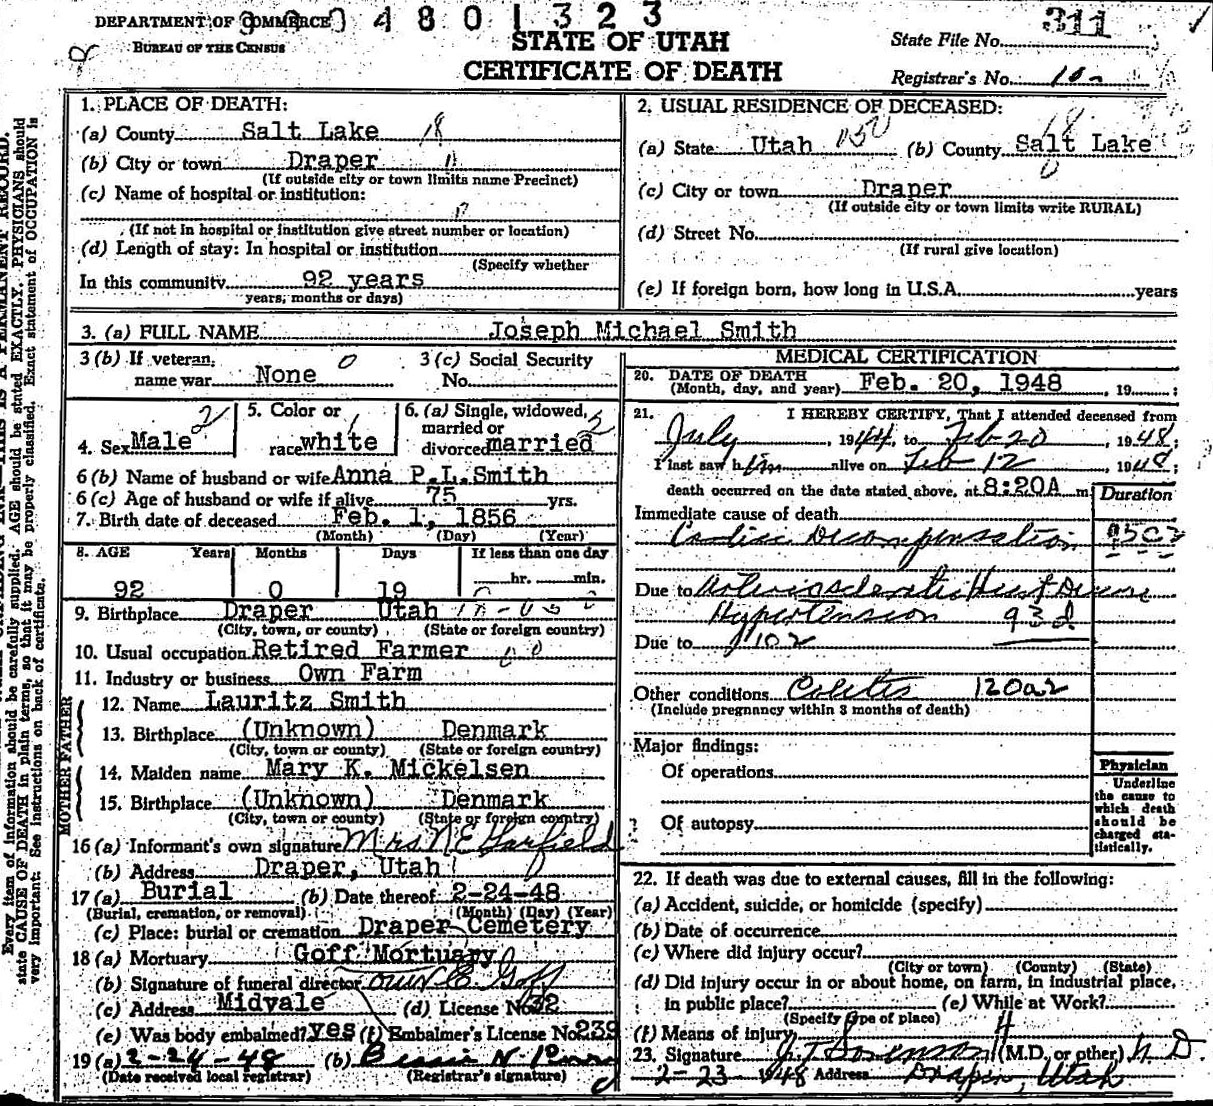 DEPARTMENT OF COMMERCE
4 8 0 1 3 2 3
BUREAU OF THE CENSUS
STATE OF UTAH
CERTIFICATE OF DEATH
State File No. 311
Registrar's No. 10
Every item of information should be carefully supplied. AGE should be stated EXACTLY. PHYSICIANS should
state CAUSE OF DEATH in plain terms, so that it may be properly classified. Exact statement of OCCUPATION is
very important. See instructions on back of certificate.
1. PLACE OF DEATH:
(a) County Salt Lake 18
(b) City or town Draper
(If outside city or town limits name Precinct)
(c) Name of hospital or institution:
(If not in hospital or institution give street number or location)
(d) Length of stay: In hospital or institution
(Specify whether
In this community 92 years
years, months or days)
2. USUAL RESIDENCE OF DECEASED:
(a) State Utah 150 (b) County Salt Lake 18
0
(c) City or town Draper
(If outside city or town limits write RURAL)
(d) Street No.
(If rural give location)
(e) If foreign born, how long in U.S.A. years
3. (a) FULL NAME Joseph Michael Smith
3 (b) If veteran, name war None 0
3 (c) Social Security No.
4. Sex Male 2
5. Color or race white
6. (a) Single, widowed, married or divorced married
6 (b) Name of husband or wife Anna P.L.Smith
6 (c) Age of husband or wife if alive 75 yrs.
7. Birth date of deceased Feb. 1, 1856
(Month) (Day) (Year)
8. AGE Years Months Days If less than one day
92 0 19 hr. min.
9. Birthplace Draper Utah
(City, town, or county) (State or foreign country)
10. Usual occupation Retired Farmer
11. Industry or business Own Farm
FATHER
12. Name Lauritz Smith
13. Birthplace (Unknown) Denmark
(City, town or county) (State or foreign country)
MOTHER
14. Maiden name Mary K. Mickelsen
15. Birthplace (Unknown) Denmark
(City, town or county) (State or foreign country)
16 (a) Informant's own signature Mrs N E Garfield
(b) Address Draper, Utah
17 (a) Burial (b) Date thereof 2-24-48
(Burial, cremation, or removal) (Month) (Day) (Year)
(c) Place: burial or cremation Draper Cemetery
18 (a) Mortuary Goff Mortuary
(b) Signature of funeral director Goff
(c) Address Midvale (d) License No. 32
(e) Was body embalmed? yes (f) Embalmer's License No. 239
19 (a) 2-24-48 (b) Bessie N.
(Date received local registrar) (Registrar's signature)
MEDICAL CERTIFICATION
20. DATE OF DEATH
(Month, day, and year) Feb. 20, 1948 , 19 ;
21. I HEREBY CERTIFY, That I attended deceased from
July , 1944, to Feb 20 , 1948;
I last saw him alive on Feb 12 , 1948;
death occurred on the date stated above, at 8:20A m.
Duration
Immediate cause of death
Cardiac Decompensation
Due to Arteriosclerotic Heart Disease
Hypertension 93d
Due to 102
Other conditions Colitis 120a2
(Include pregnancy within 3 months of death)
Major findings:
Of operations
Of autopsy
Physician
Underline
the cause to
which death
should be
charged sta-
tistically.
22. If death was due to external causes, fill in the following:
(a) Accident, suicide, or homicide (specify)
(b) Date of occurrence
(c) Where did injury occur?
(City or town) (County) (State)
(d) Did injury occur in or about home, on farm, in industrial place,
in public place? (e) While at Work?
(Specify type of place)
(f) Means of injury
23. Signature Sorenson (M.D. or other) M.D.
2-23- 1948 Address Draper, Utah